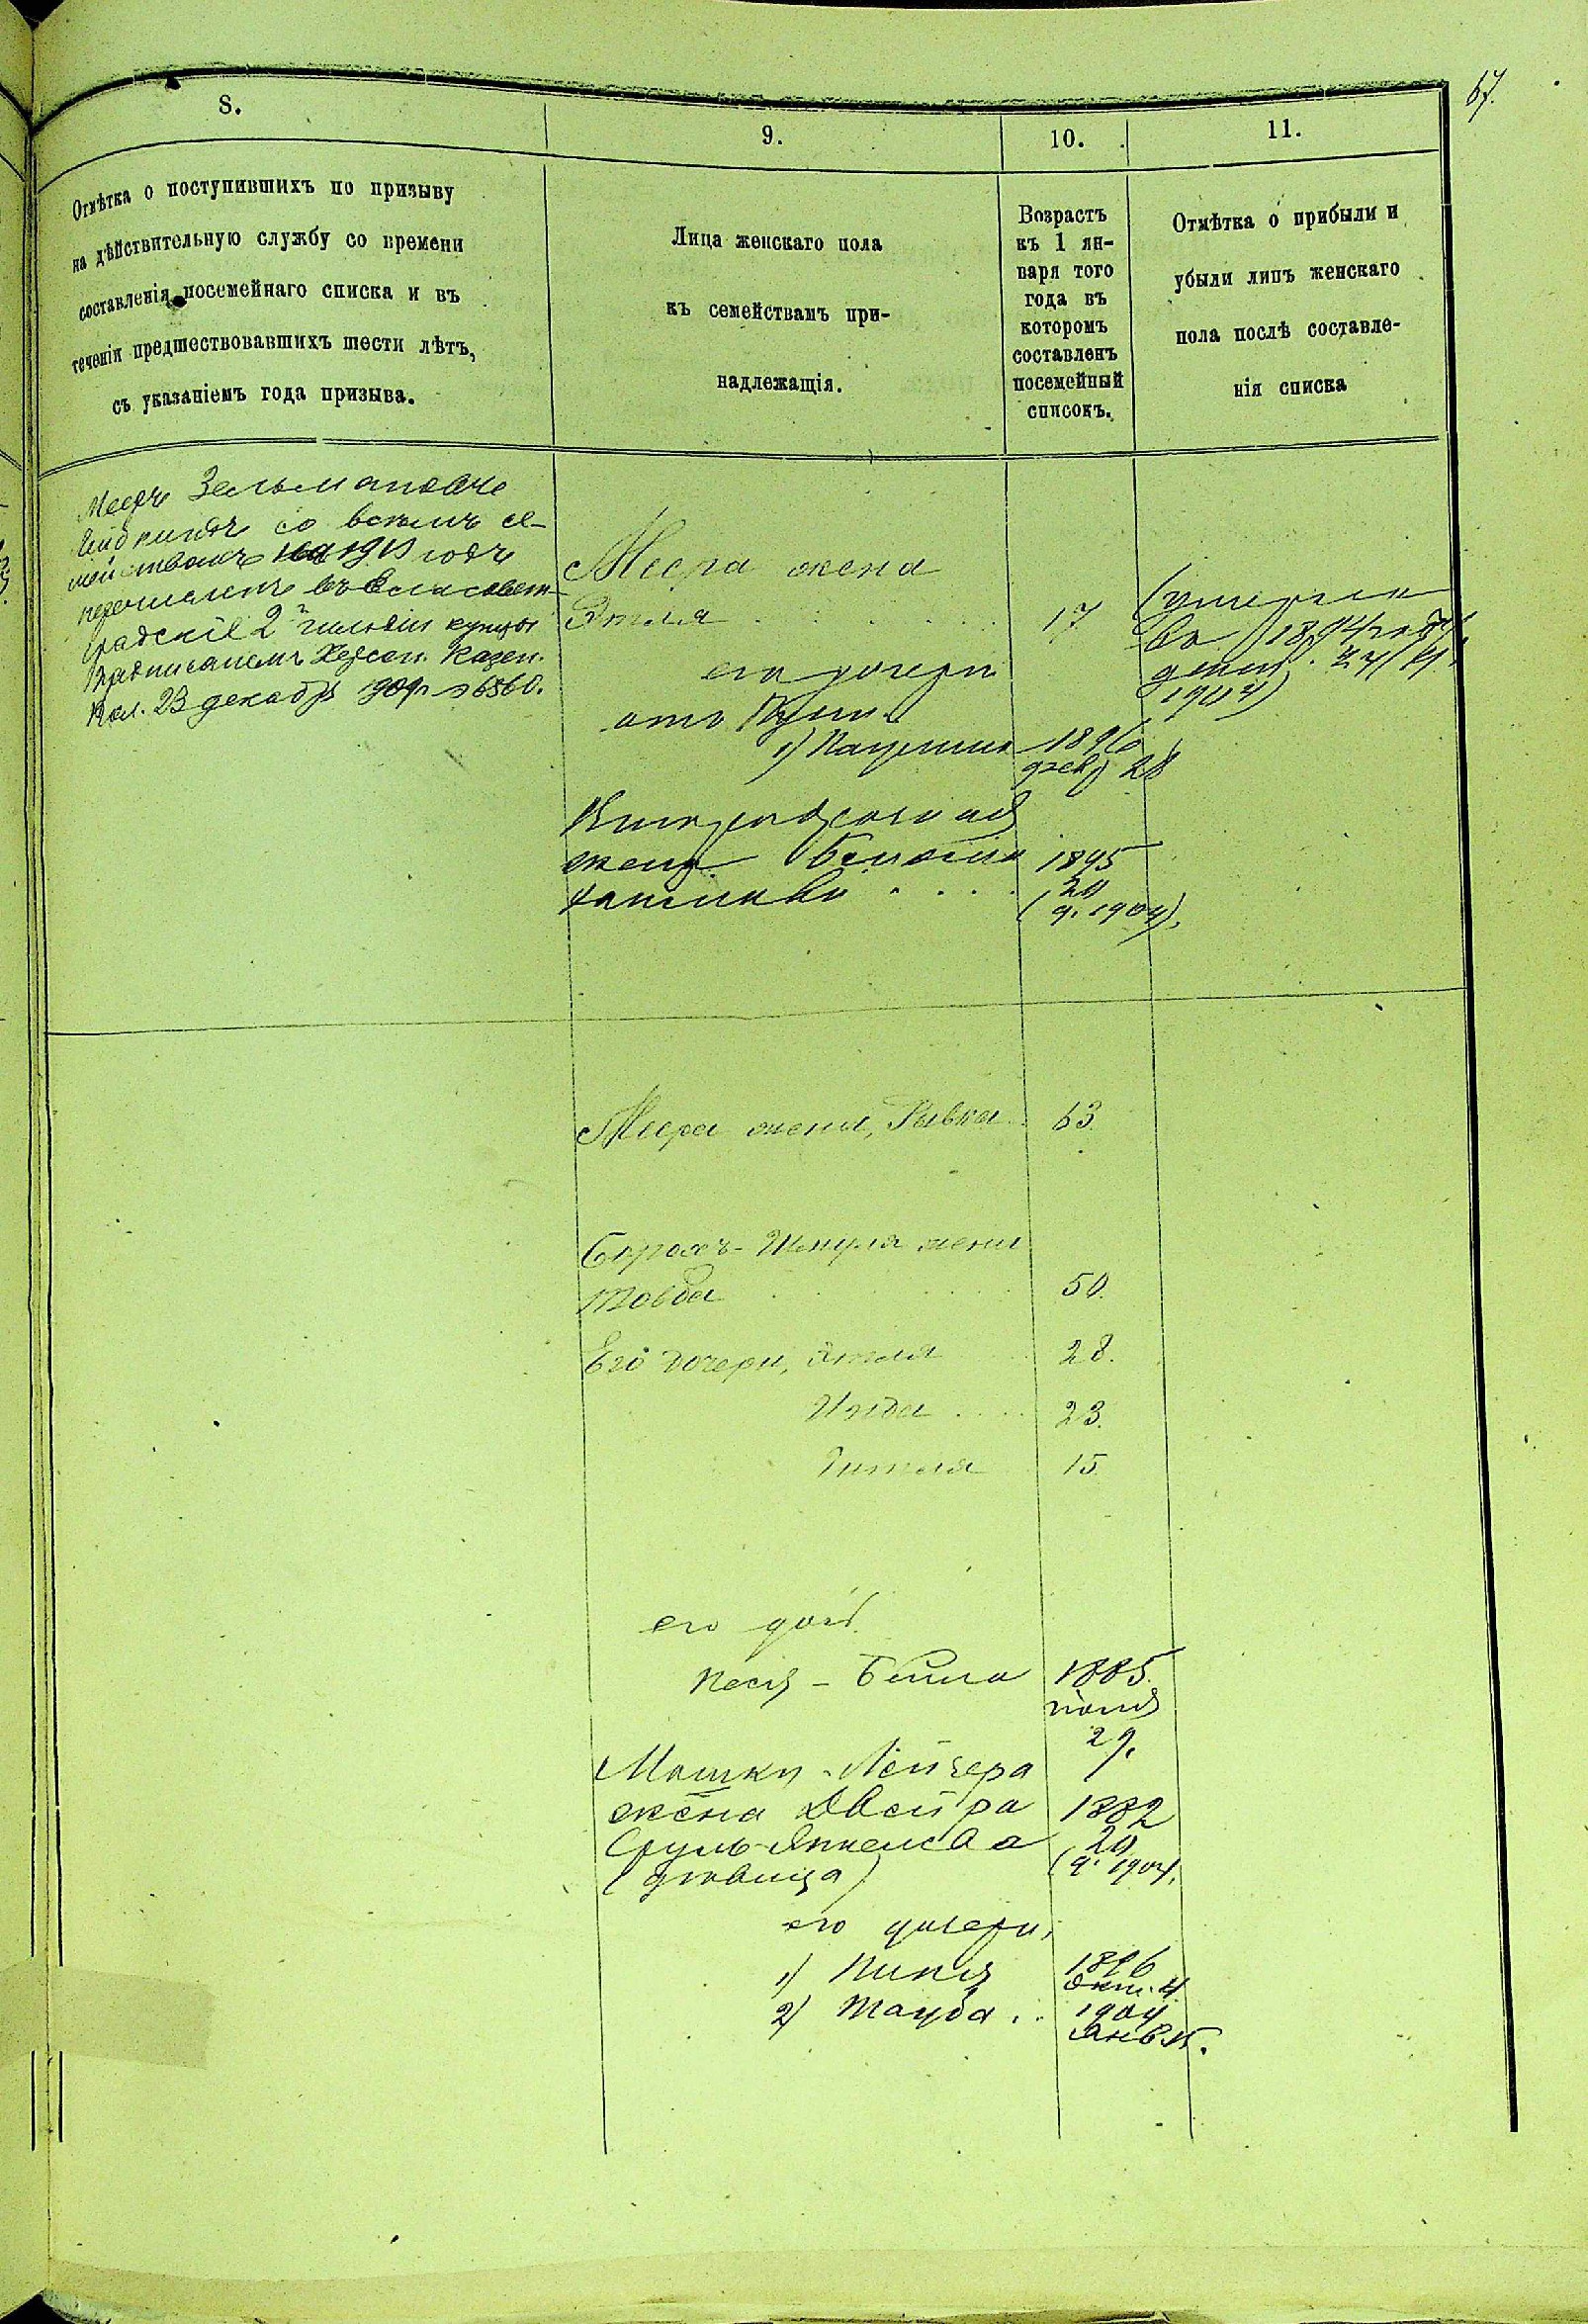 67.
8.
9.
10.
11.
Отмѣтка о поступившихъ по призыву
на дѣйствительную службу со времени
составленія посемейнаго списка и въ
теченіи предшествовавшихъ шести лѣтъ,
съ указаніемъ года призыва.
Лица женскаго пола
къ семействамъ при-
надлежащія.
Возрастъ
къ 1 ян-
варя того
года въ
которомъ
составленъ
посемейный
списокъ.
Отмѣтка о прибыли и
убыли лицъ женскаго
пола послѣ составле-
нія списка
Меер Зельмановъ
со всѣмъ се-
мействомъ на 1910 годъ
перечисленъ въ Елисавет-
градскіе 2й гильдіи купцы
предписаніемъ Херсон. Казен.
Пал. 23 декабр 1909 г. 6560.
Меера жена
Этля 17
(умерла
въ 1894 году
1904)
его дочери
1) 1896
28
жена 1895
20
(д. 1904).
Меера жена, Ривка 63.
Борохъ-Шмуля жена
Товба 50.
Его дочери, Этля 28.
23.
Гитля 15
его доч.
Песя - Бейла 1885.
іюня
29.
Мошки-Лейзера
жена Двейра 1882
Сруль-Янкелева 20
(дѣвица) (д. 1904.
его дочери,
1) 1896
Окт. 4.
2) Тауба . . 1904
Янв 15.